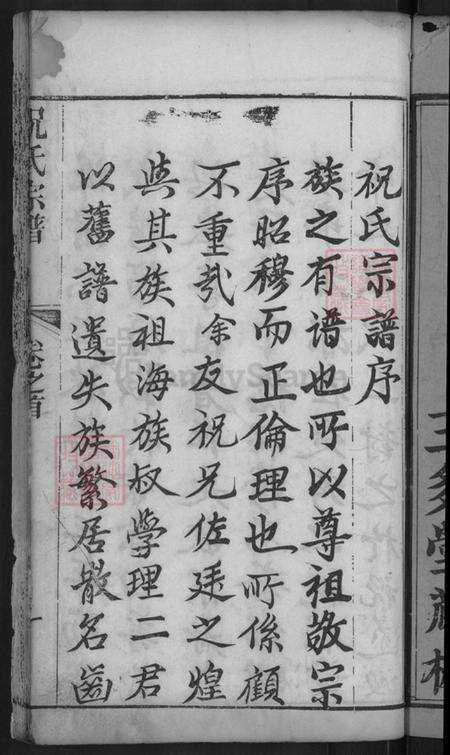 三多堂藏板
祝氏宗譜序
族之有谱也所以尊祖敬宗
序昭穆而正倫理也所係顧
不重㢤余友祝兄佐廷之煌
與其族祖海族叔學理二君
以舊譜遺失族繁居散名齒
祝氏宗譜
卷之首
一